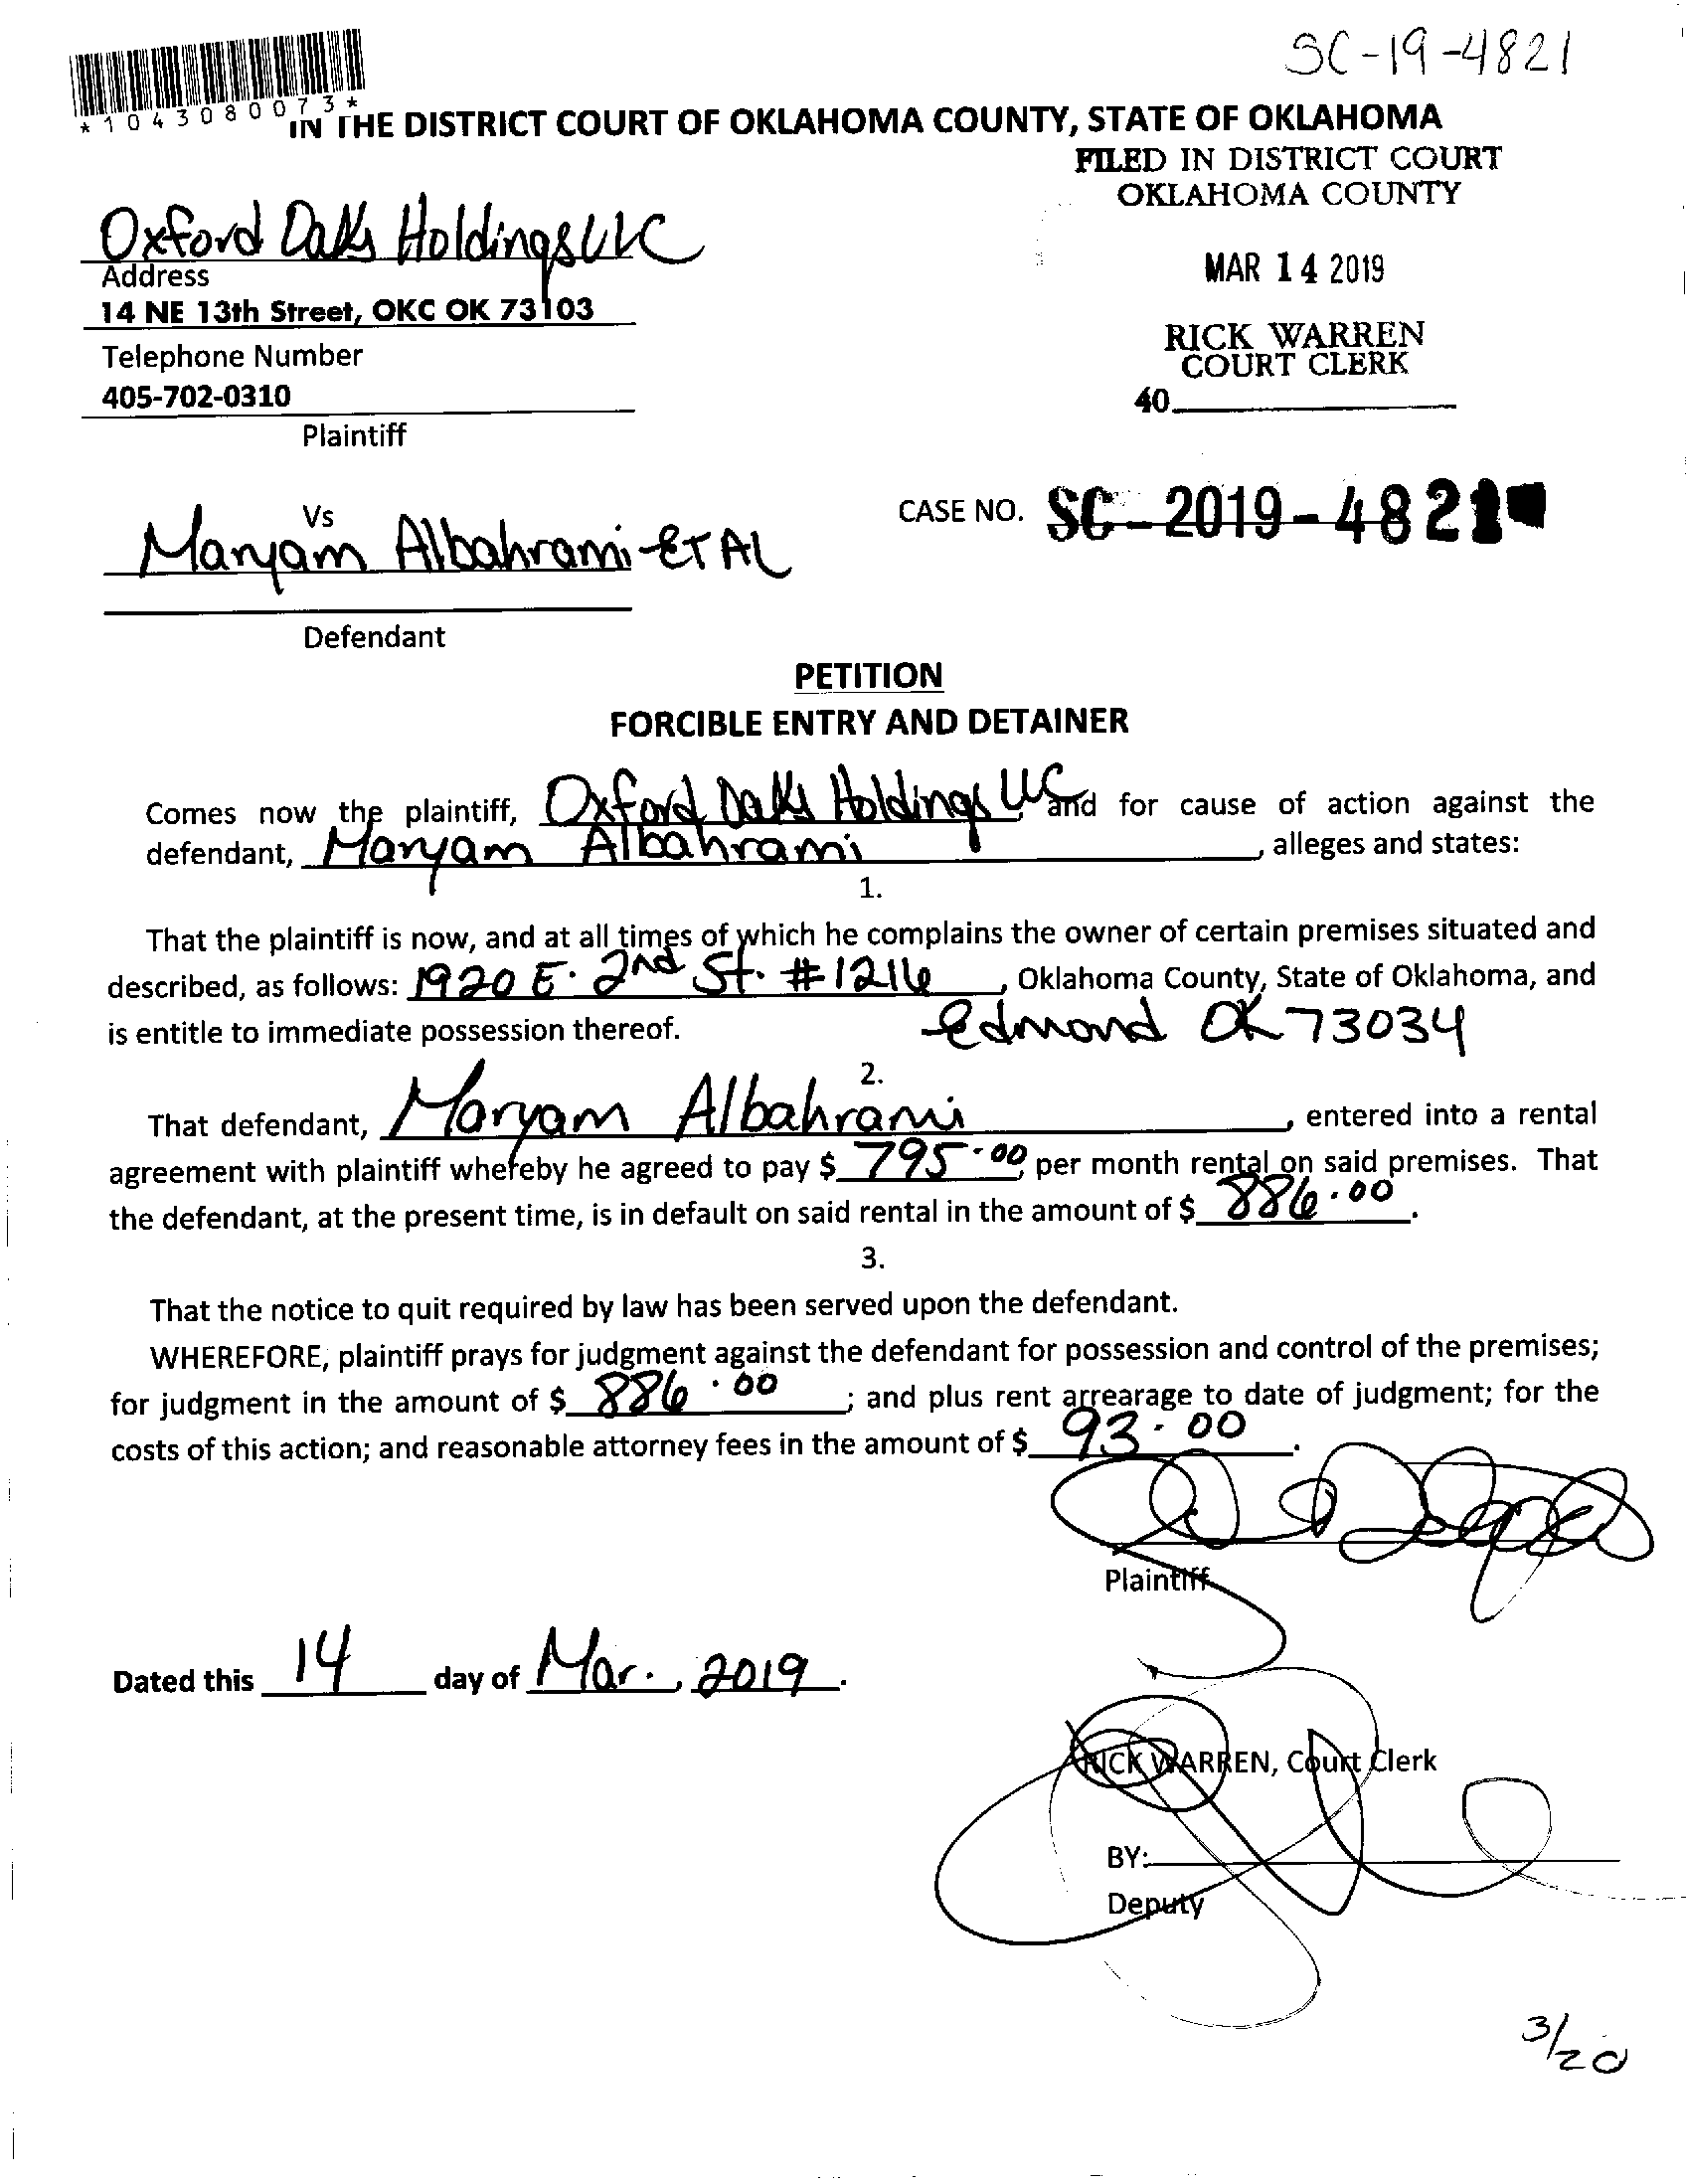 SC-19-4821
*1043080073*
IN THE DISTRICT COURT OF OKLAHOMA COUNTY, STATE OF OKLAHOMA
FILED IN DISTRICT COURT
OKLAHOMA COUNTY
Oxford Oaks Holdings LLC
Address
14 NE 13th Street, OKC OK 73103
MAR 14 2019
Telephone Number
RICK WARREN
COURT CLERK
405-702-0310
40
Plaintiff
Vs
CASE NO. SC-2019-4821
Maryam Albahrami-ET AL
Defendant
PETITION
FORCIBLE ENTRY AND DETAINER
Comes now the plaintiff, Oxford Oaks Holdings LLC, and for cause of action against the
defendant, Maryam Albahrami, alleges and states:
1.
That the plaintiff is now, and at all times of which he complains the owner of certain premises situated and
described, as follows: 1920 E. 2nd St. #1216, Oklahoma County, State of Oklahoma, and
is entitle to immediate possession thereof. Edmond OK 73034
2.
That defendant, Maryam Albahrami, entered into a rental
agreement with plaintiff whereby he agreed to pay $ 795.00, per month rental on said premises. That
the defendant, at the present time, is in default on said rental in the amount of $ 886.00.
3.
That the notice to quit required by law has been served upon the defendant.
WHEREFORE, plaintiff prays for judgment against the defendant for possession and control of the premises;
for judgment in the amount of $ 886.00; and plus rent arrearage to date of judgment; for the
costs of this action; and reasonable attorney fees in the amount of $ 93.00.
Plaintiff
Dated this 14 day of Mar., 2019.
RICK WARREN, Court Clerk
BY:
Deputy
3/20